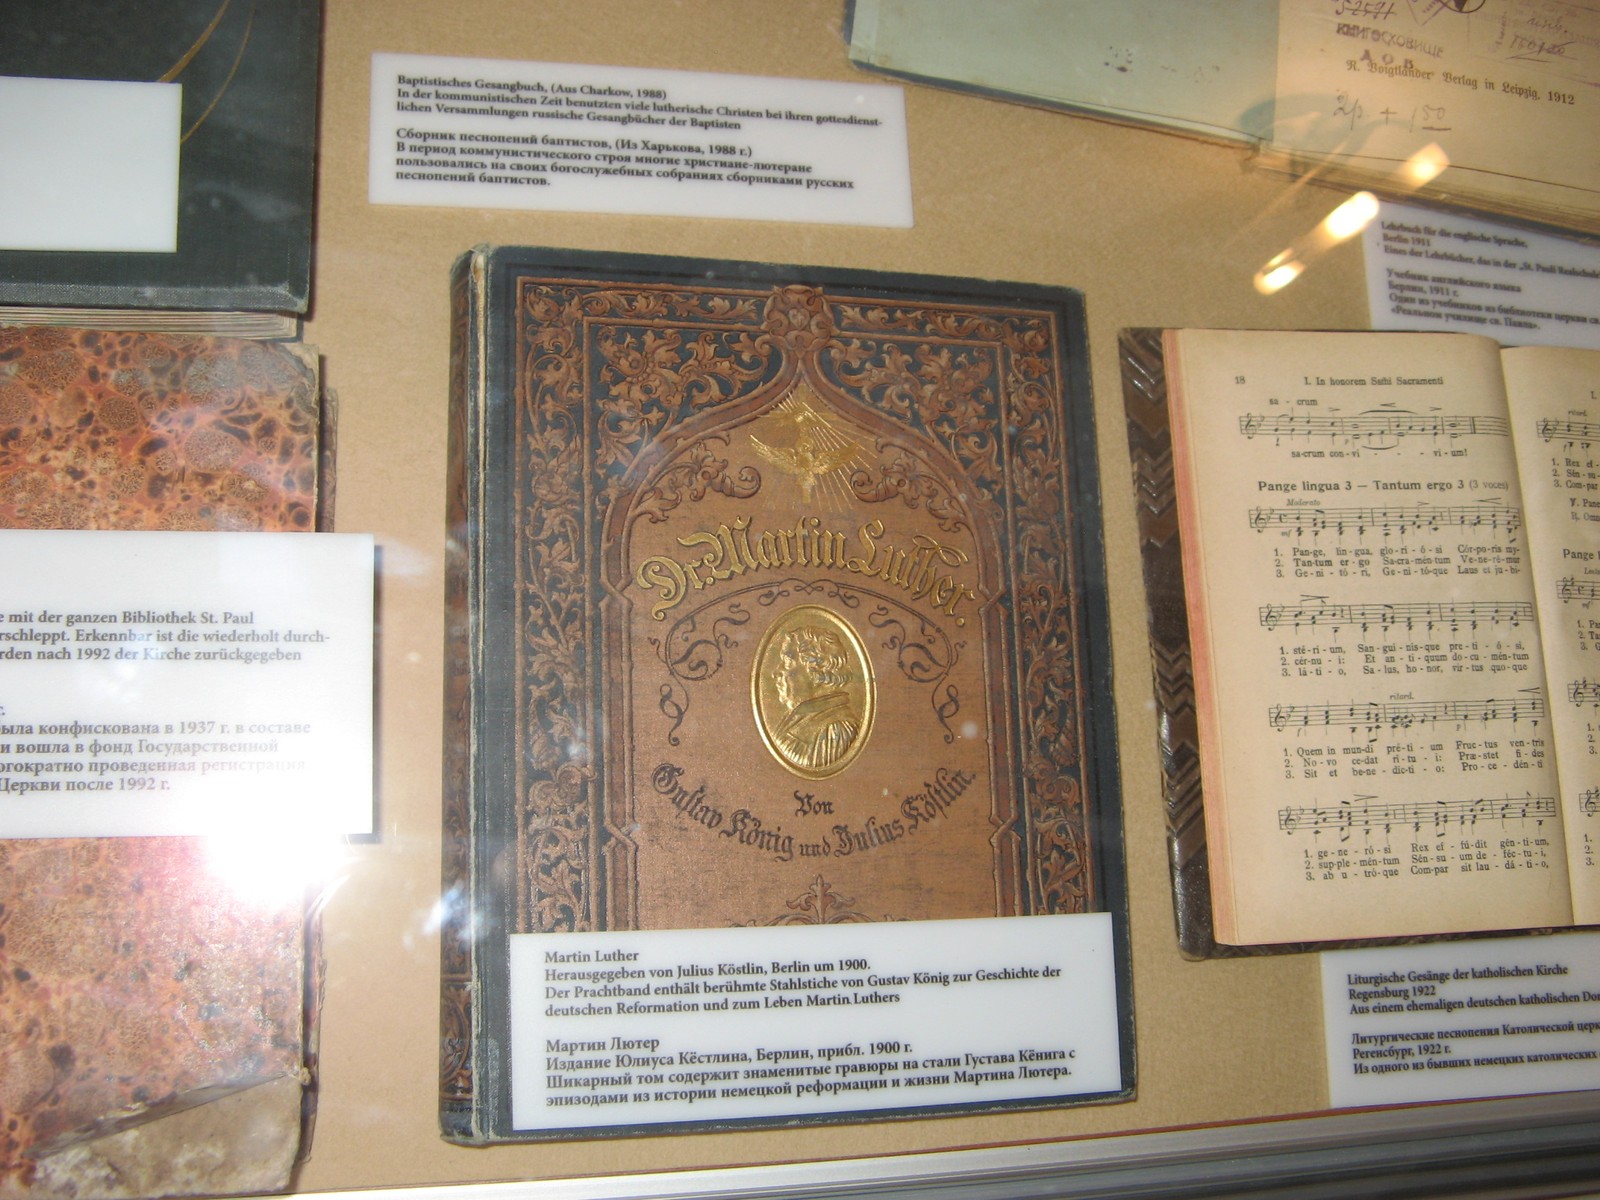 Baptistisches Gesangbuch, (Aus Charkow, 1988)
In der kommunistischen Zeit benutzten viele lutherische Christen bei ihren gottesdienst-
lichen Versammlungen russische Gesangbücher der Baptisten
Сборник песнопений баптистов, (Из Харькова, 1988 г.)
В период коммунистического строя многие христиане-лютеране
пользовались на своих богослужебных собраниях сборниками русских
песнопений баптистов.
52591
КНИГОСХОВИЩЕ
А О В
R. Voigtländer Verlag in Leipzig, 1912
2p + 150
Lehrbuch für die englische Sprache,
Berlin 1911
Eines der Lehrbücher, das in der „St. Pauli Realschule
Учебник английского языка
Берлин, 1911 г.
Один из учебников из библиотеки церкви св.
«Реальном училище св. Павла».
e mit der ganzen Bibliothek St. Paul
rschleppt. Erkennbar ist die wiederholt durch-
rden nach 1992 der Kirche zurückgegeben
г.
ыла конфискована в 1937 г. в составе
и вошла в фонд Государственной
огократно проведенная регистрация
Церкви после 1992 г.
Dr. Martin Luther.
Von
Gustav König und Julius Köstlin.
Martin Luther
Herausgegeben von Julius Köstlin, Berlin um 1900.
Der Prachtband enthält berühmte Stahlstiche von Gustav König zur Geschichte der
deutschen Reformation und zum Leben Martin Luthers
Мартин Лютер
Издание Юлиуса Кёстлина, Берлин, прибл. 1900 г.
Шикарный том содержит знаменитые гравюры на стали Густава Кёнига с
эпизодами из истории немецкой реформации и жизни Мартина Лютера.
18 I. In honorem Ssmi Sacramenti
sa - crum
sa-crum con-vi - - - vi-um!
Pange lingua 3 — Tantum ergo 3 (3 voces)
Moderato
mf
1. Pan-ge, lin-gua, glo-ri-ó-si Córpo-ris my-
2. Tan-tum er-go Sa-cra-mén-tum Ve-ne-ré-mur
3. Ge-ni-tó-ri, Ge-ni-tó-que Laus et ju-bi-
1. sté-ri-um, San-gui-nis-que pre-ti-ó-si,
2. cér-nu-i: Et an-tí-quum do-cu-méntum
3. lá-ti-o, Sa-lus, ho-nor, vir-tus quo-que
ritard.
1. Quem in mun-di pré-ti-um Fruc-tus ven-tris
2. No-vo ce-dat rí-tu-i: Præ-stet fi-des
3. Sit et be-ne-díc-ti-o: Pro-ce-dén-ti
1. ge-ne-ró-si Rex ef-fú-dit gén-ti-um.
2. sup-ple-méntum Sén-su-um de-féc-tu-i.
3. ab u-tró-que Com-par sit lau-dá-ti-o,
I.
ritard.
1. Rex ef-
2. Sén-su-
3. Com-par
Pange l
Liturgische Gesänge der katholischen Kirche
Regensburg 1922
Aus einem ehemaligen deutschen katholischen Dor
Литургические песнопения Католической церк
Регенсбург, 1922 г.
Из одного из бывших немецких католических